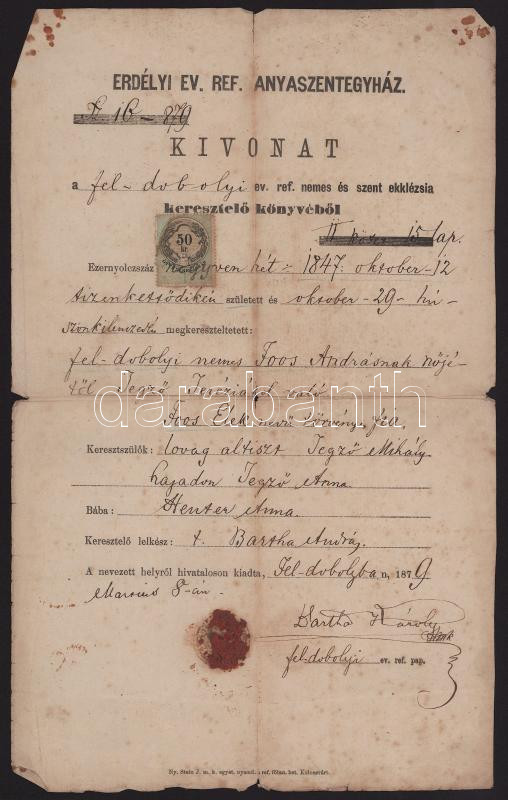 ERDÉLYI EV. REF. ANYASZENTEGYHÁZ.
16-879
KIVONAT
a fel-dobolyi ev. ref. nemes és szent ekklézsia
keresztelő könyvéből
II köt. 15 lap.
50
kr.
Ezernyolczáz negyven hét = 1847. oktober-12
tizenkettődikén született és oktober-29-hu-
szonkilenczedn megkereszteltetett:
fel-dobolyi nemes Foos Andrásnak nőjé-
től Jegző
Foos Elek nevü törvényes fia,
Keresztszülők: lovag altiszt Jegző Mihály
hajadon Jegző Anna
Bába: Henter Anna.
Keresztelő lelkész: t. Bartha András.
A nevezett helyről hivatalosan kiadta, Fel-dobolyban, 1879
Marcius 8-án.
Bartha Károly
fel-dobolyi ev. ref. pap.
Ny. Stein J. m. k. egyet. nyomd. ref. főtan. bet. Kolozsvárt.
darabanth